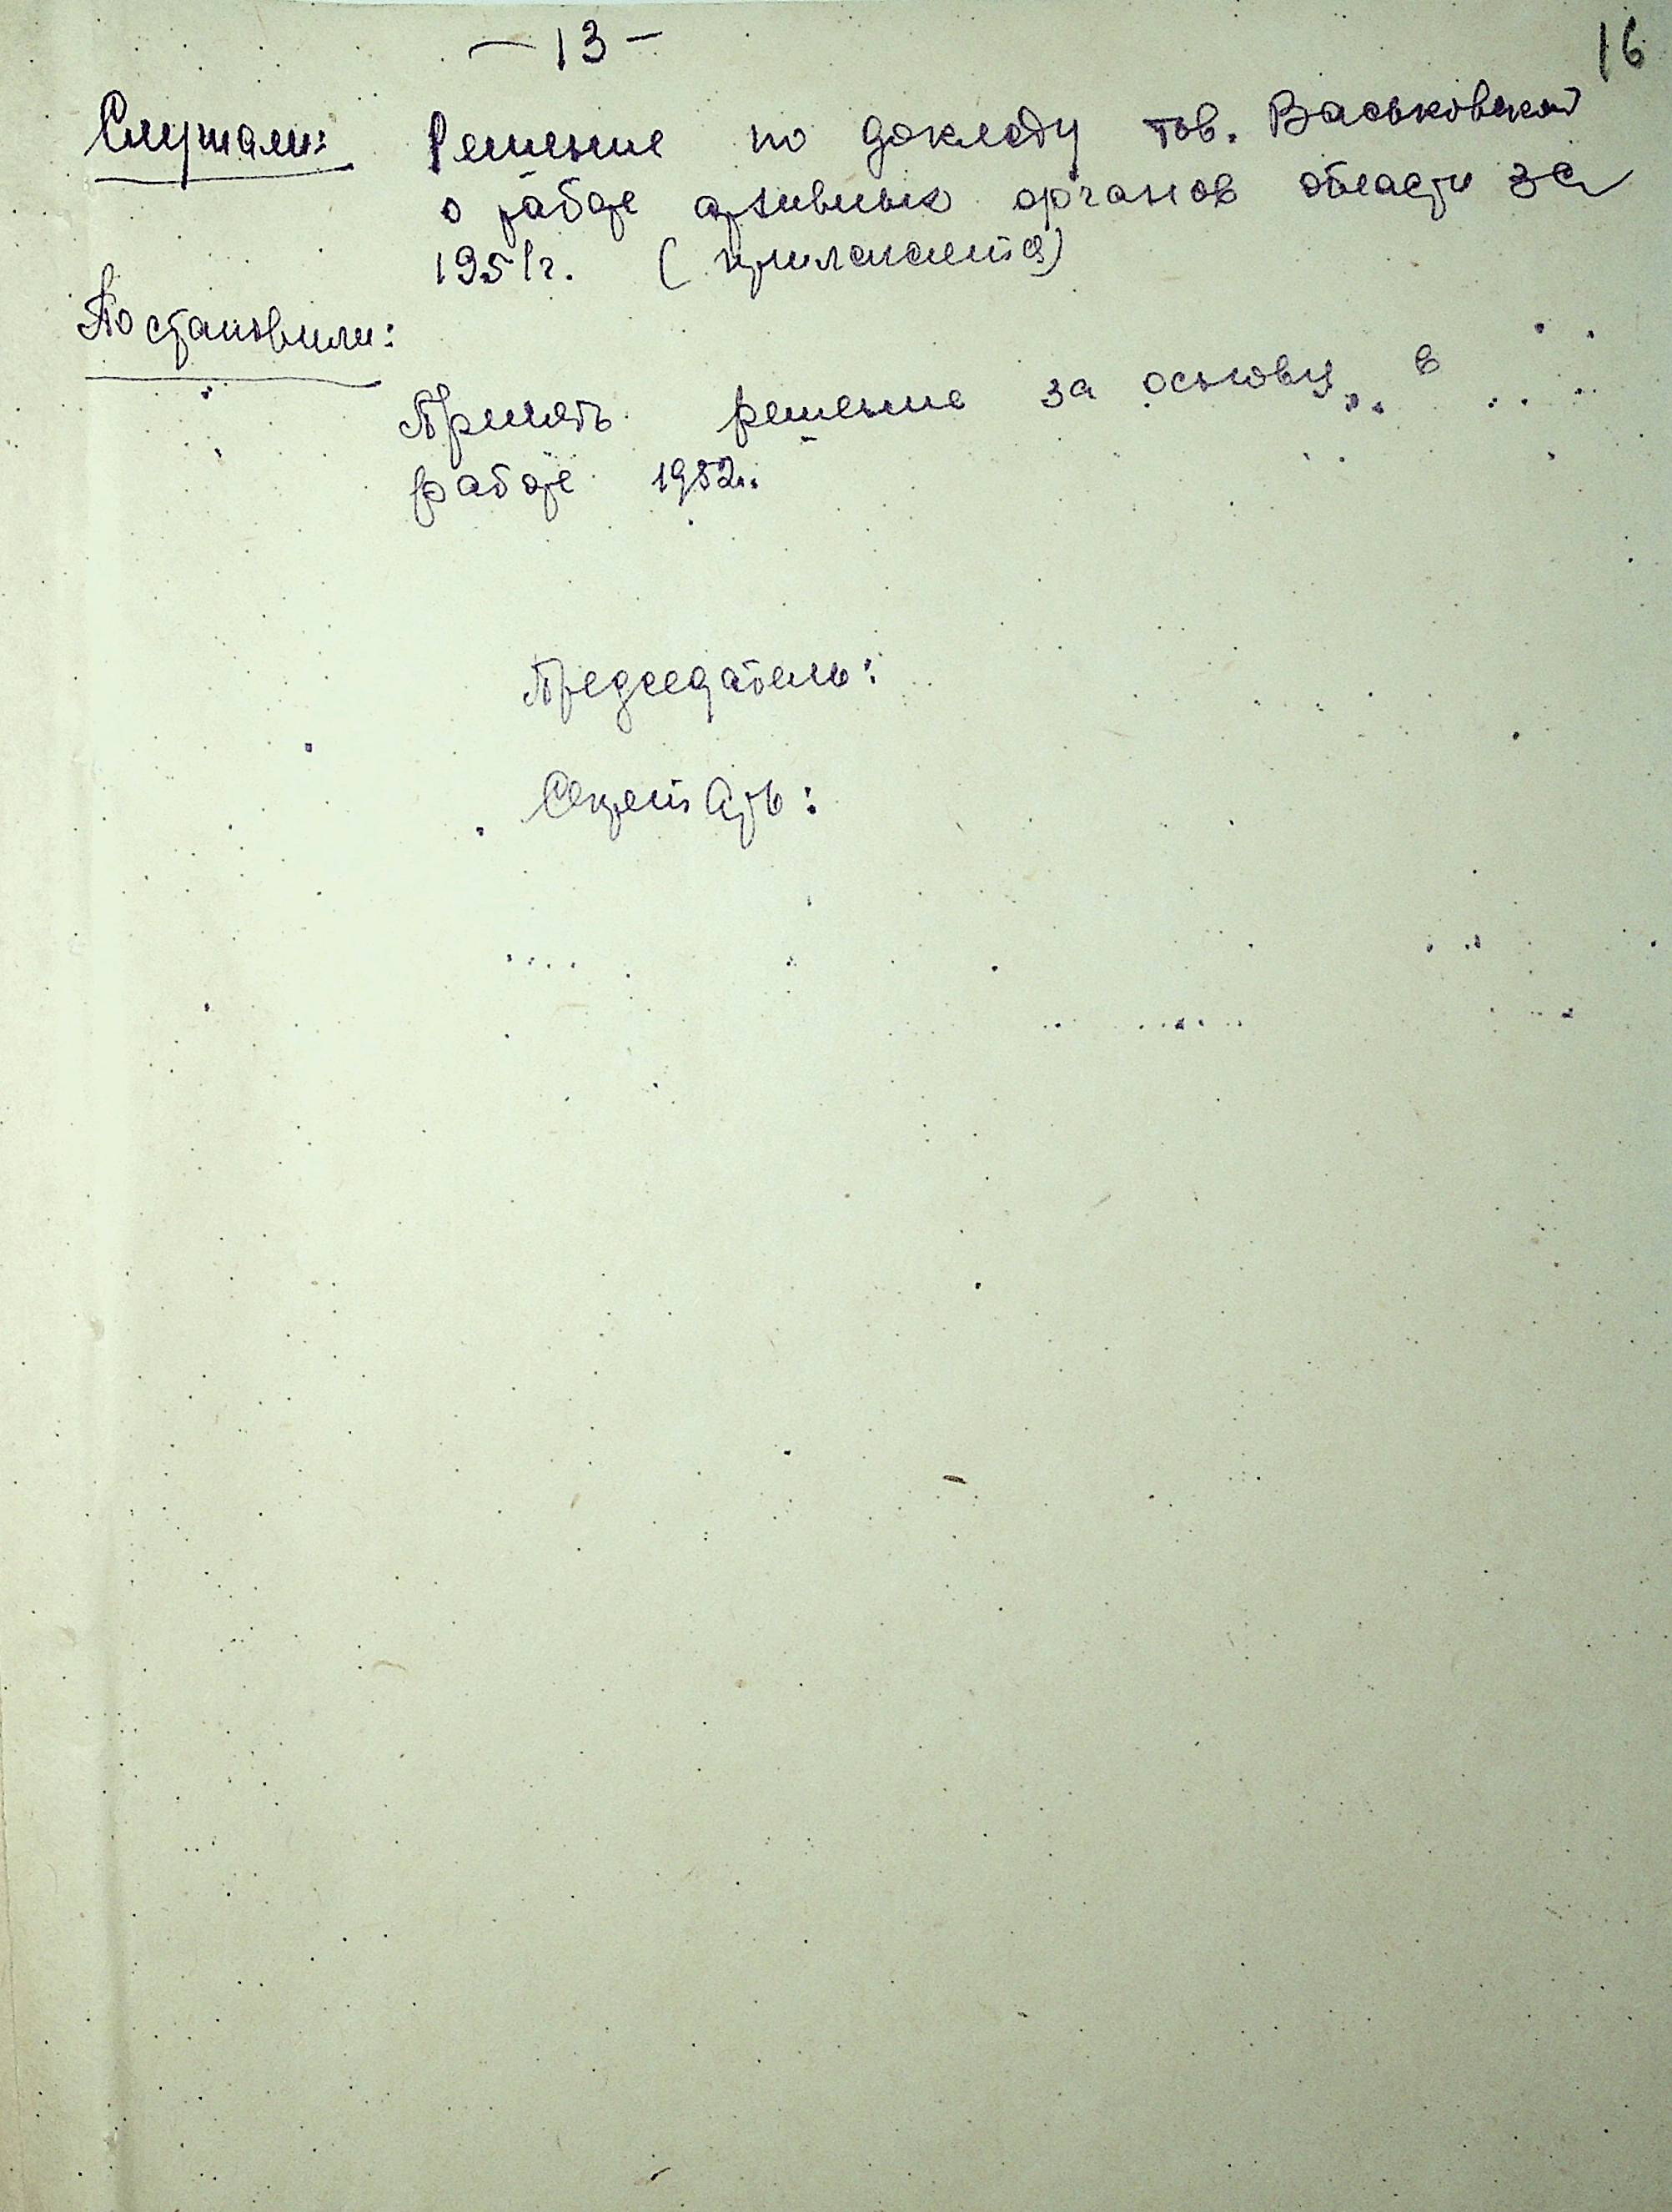 — 13 —
16
Слушали: Решение по докладу тов. Васьковской
о работе архивных органов области за
1951г. (прилагается)
Постановили:
Принять решение за основу в
работе 1952г.
Председатель:
Секретарь: